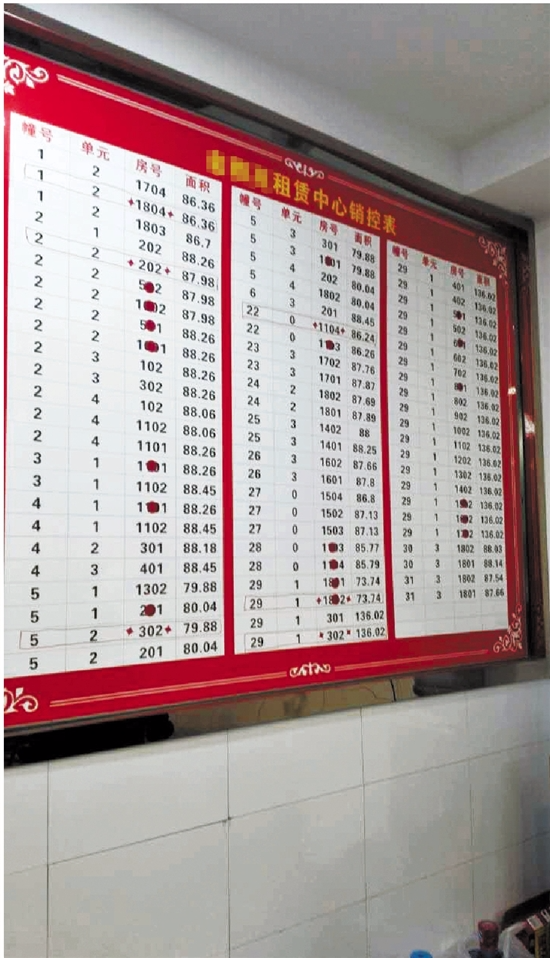 租赁中心销控表
幢号 单元 房号 面积
1 2 1704 86.36
1 2 1804 86.36
1 2 1803 86.7
2 1 202 88.26
2 2 202 87.98
2 2 87.98
2 2 87.98
2 2 88.26
2 2 88.26
2 3 102 88.26
2 3 302 88.26
2 4 102 88.06
2 4 1102 88.06
2 4 1101 88.26
3 1 88.26
3 1 1102 88.45
4 1 88.26
4 1 1102 88.45
4 2 301 88.18
4 3 401 88.45
5 1 1302 79.88
5 1 80.04
5 2 302 79.88
5 2 201 80.04
幢号 单元 房号 面积
5 3 301 79.88
5 3 79.88
5 4 202 80.04
5 4 1802 80.04
6 3 201 88.45
22 0 1104 86.24
22 0 86.26
23 3 1702 87.76
23 3 1701 87.87
24 2 1802 87.69
24 2 1801 87.89
25 3 1402 88
25 3 1401 88.25
26 3 1602 87.66
26 3 1601 87.8
27 0 1504 86.8
27 0 1502 87.13
27 0 1503 87.13
28 0 85.77
28 0 85.79
29 1 73.74
29 1 73.74
29 1 301 136.02
29 1 302 136.02
幢号 单元 房号 面积
29 1 401 136.02
29 1 402 136.02
29 1 136.02
29 1 502 136.02
29 1 136.02
29 1 602 136.02
29 1 702 136.02
29 1 136.02
29 1 802 136.02
29 1 902 136.02
29 1 1002 136.02
29 1 1102 136.02
29 1 1202 136.02
29 1 1302 136.02
29 1 1402 136.02
29 1 136.02
29 1 136.02
29 1 136.02
30 3 1802 88.03
30 3 1801 88.14
31 3 1802 87.54
31 3 1801 87.66